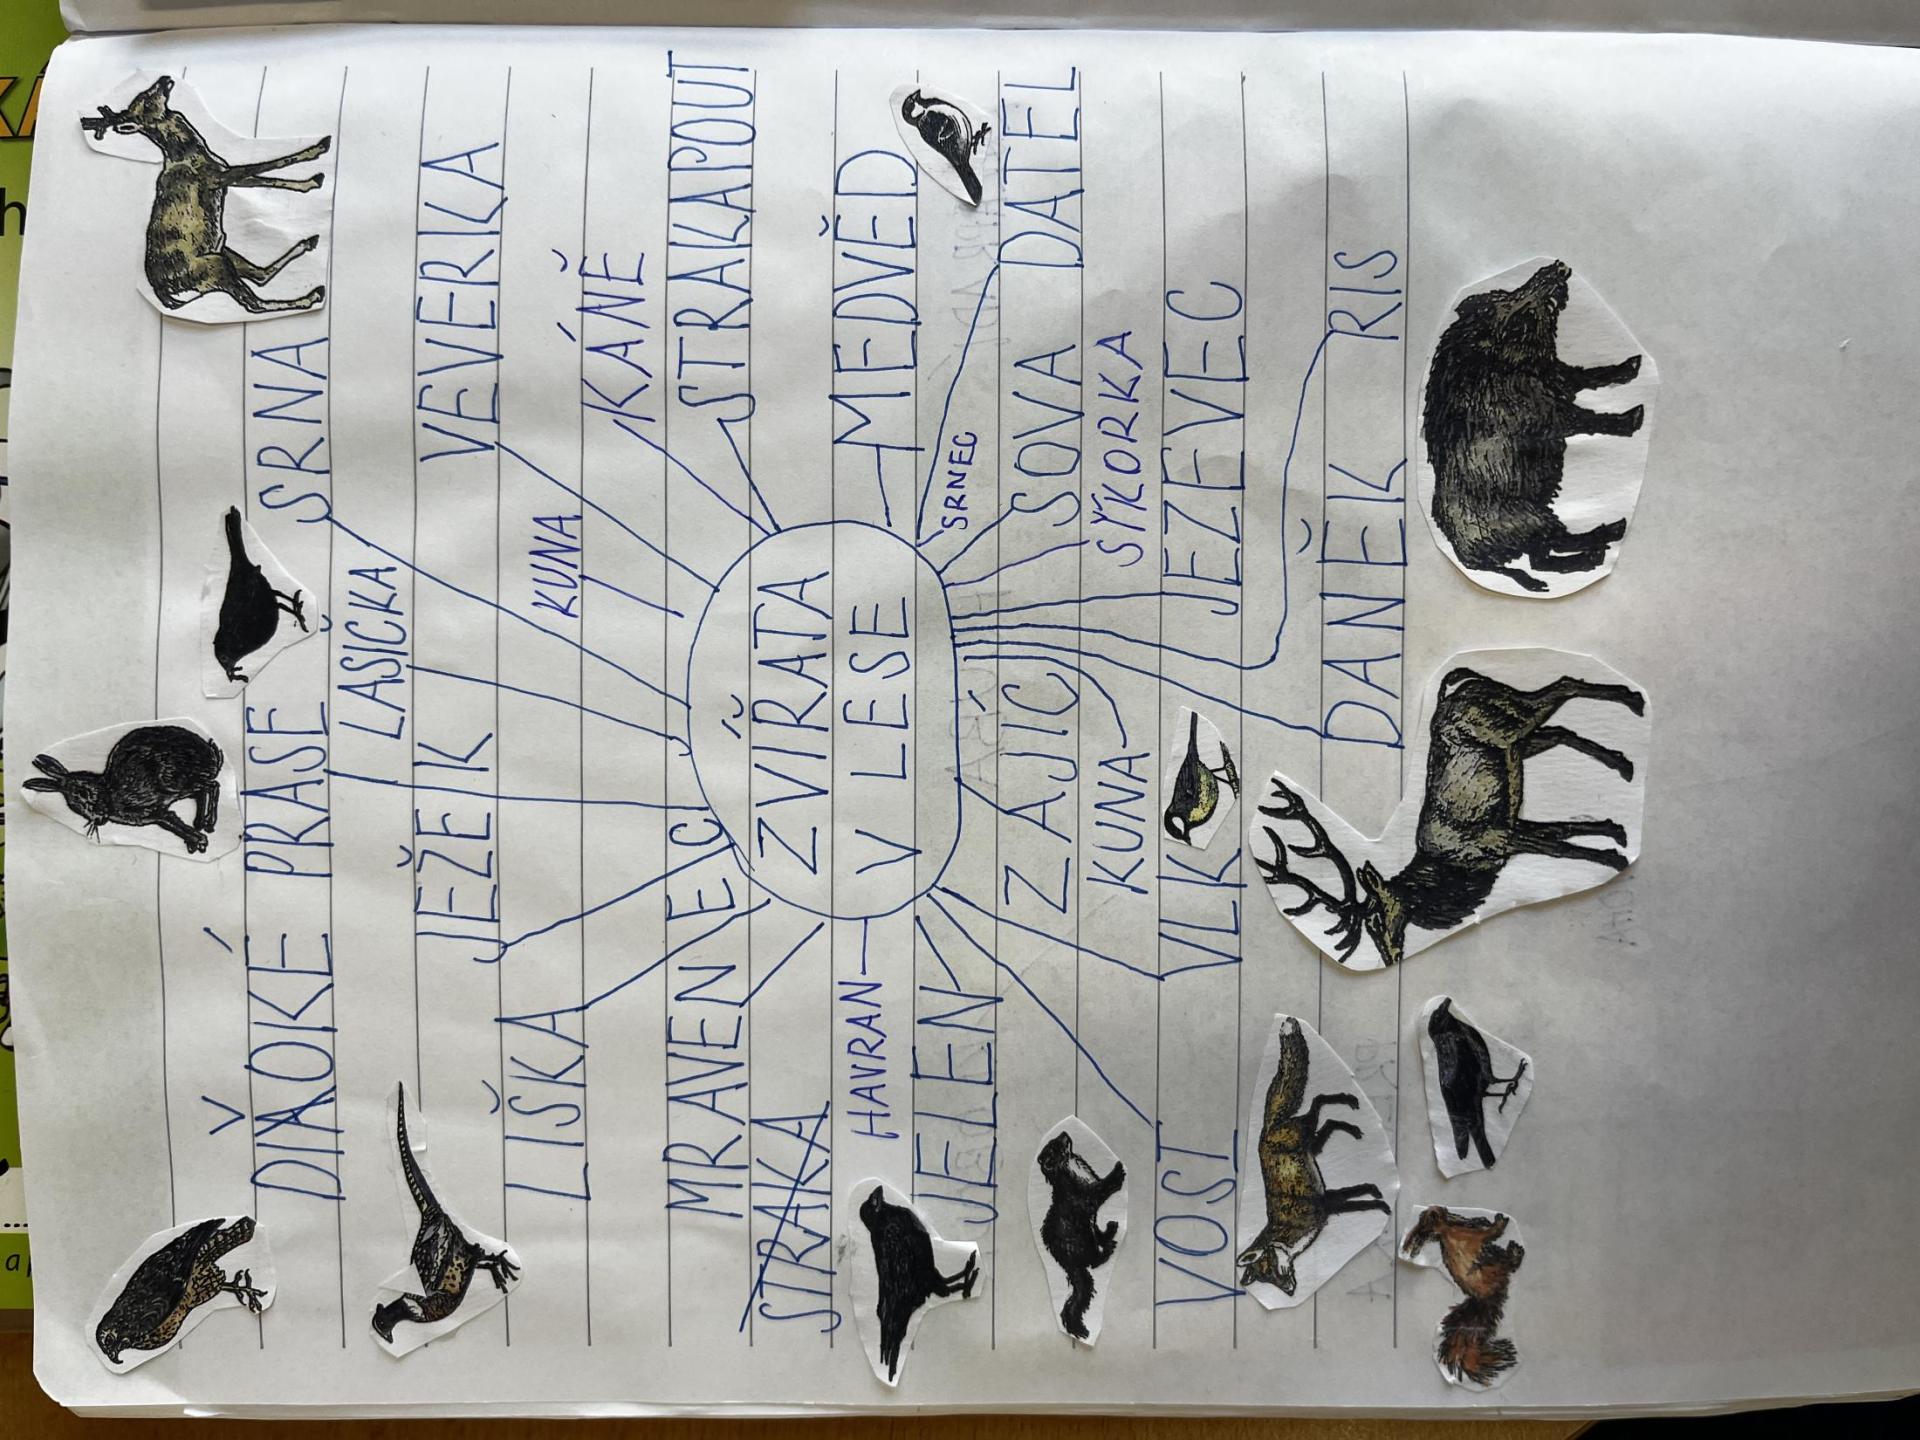 V
DIVOKÉ PRASE SRNA
LASIČKA
JEŽEK VEVERKA
LIŠKA KUNA KÁNĚ
MRAVENEC STRAKAPOUT
STRAKA ZVÍŘATA
HAVRAN V LESE MEDVĚD
JELEN SRNEC
ZAJÍC SOVA DATEL
KUNA SÝKORKA
VOST VLK JEZEVEC
DANĚK RIS